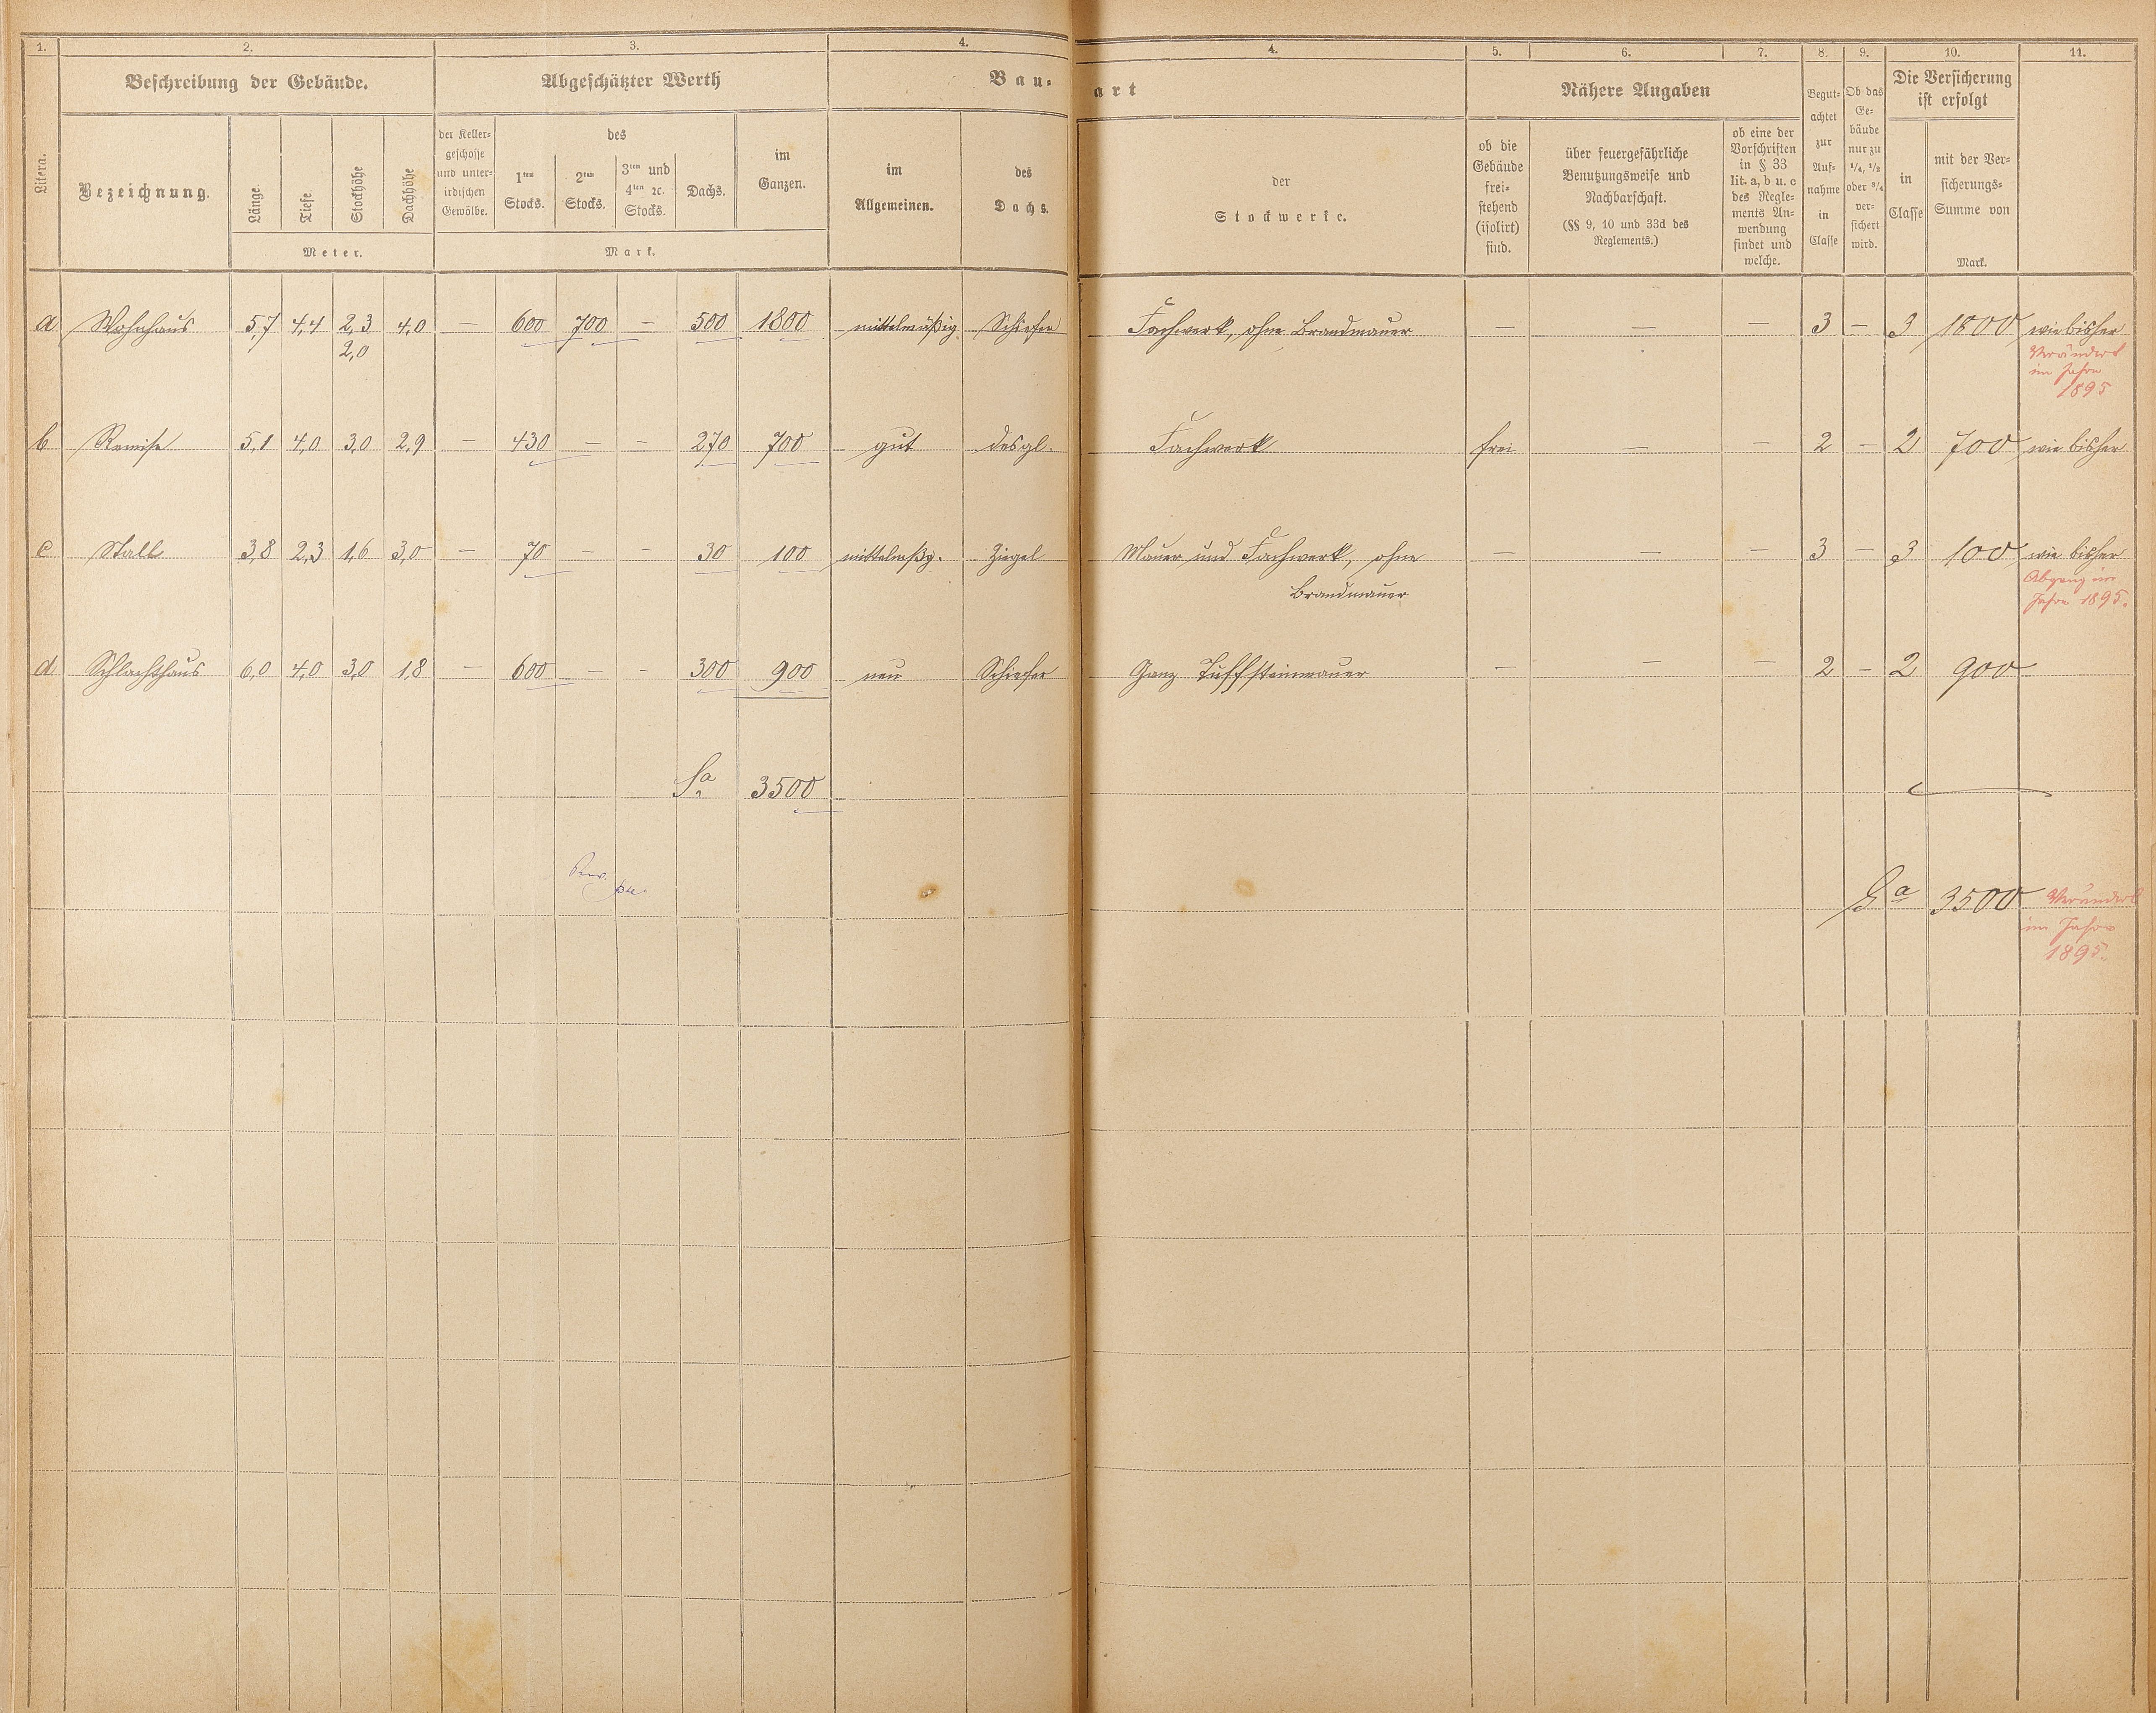 1. 2. 3. 4. 4. 5. 6. 7. 8. 9. 10. 11.
Litera.
Beschreibung der Gebäude.
Bezeichnung.
Länge.
Tiefe.
Stockhöhe
Dachhöhe
Meter.
Abgeschätzter Werth
der Keller-
geschosse
und unter-
irdischen
Gewölbe.
des
1ten
Stocks.
2ten
Stocks.
3ten und
4ten ꝛc.
Stocks.
Dachs.
im
Ganzen.
Mark.
Bau-
im
Allgemeinen.
des
Dachs.
art
der
Stockwerke.
Nähere Angaben
ob die
Gebäude
frei-
stehend
(isolirt)
sind.
über feuergefährliche
Benutzungsweise und
Nachbarschaft.
(§§ 9, 10 und 33d des
Reglements.)
ob eine der
Vorschriften
in § 33
lit. a, b u. c
des Regle-
ments An-
wendung
findet und
welche.
Begut-
achtet
zur
Auf-
nahme
in
Classe
Ob das
Ge-
bäude
nur zu
1/4, 1/2
oder 3/4
ver-
sichert
wird.
Die Versicherung
ist erfolgt
in
Classe
mit der Ver-
sicherungs-
Summe von
Mark.
a Wohnhaus 5,7 4,4 2,3 4,0 — 600 700 — 500 1800 mittelmäßig Schiefer Fachwerk, ohne Brandmauer — — — 3 — 3 1800 wie bisher
2,0
Verändert
im Jahre
1895
b Remise 5,1 4,0 3,0 2,9 — 430 — — 270 700 gut desgl. Fachwerk frei — — 2 — 2 700 wie bisher
c Stall 3,8 2,3 1,6 3,0 — 70 — — 30 100 mittelmßg. Ziegel Mauer und Fachwerk, ohne — — — 3 — 3 100 wie bisher
Brandmauer
Abgang im
Jahre 1895.
d Schlachthaus 6,0 4,0 3,0 1,8 — 600 — — 300 900 neu Schiefer Ganz Tuffsteinmauer — — — 2 — 2 900
Sa. 3500
Sa 3500 Verändert
im Jahre
1895.